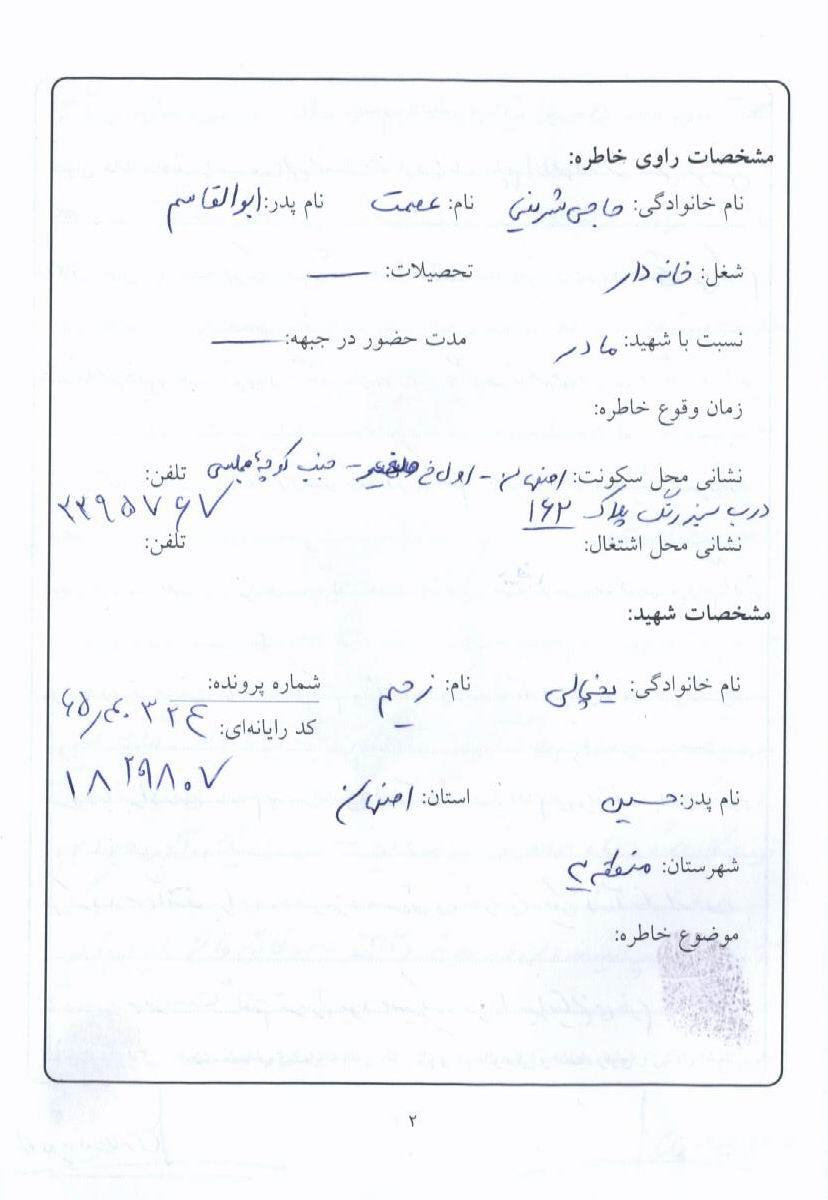 مشخصات راوی خاطره:
نام خانوادگی: حاجی شرینی نام: عصمت نام پدر: ابوالقاسم
شغل: خانه دار تحصیلات: ——
نسبت با شهید: مادر مدت حضور در جبهه: ——
زمان وقوع خاطره:
نشانی محل سکونت: اصفهان - اول خ - جنب کوچه مجلسی تلفن:
درب سبز رنگ پلاک ۱۶۲ ۲۲۹۵۷۶۷
نشانی محل اشتغال: تلفن:
مشخصات شهید:
نام خانوادگی: یخچالی نام: رحیم شماره پرونده:
کد رایانه‌ای:
نام پدر: حسین استان: اصفهان ۱۸۲۹۸۰۷
شهرستان: منطقه ۲
موضوع خاطره:
۲